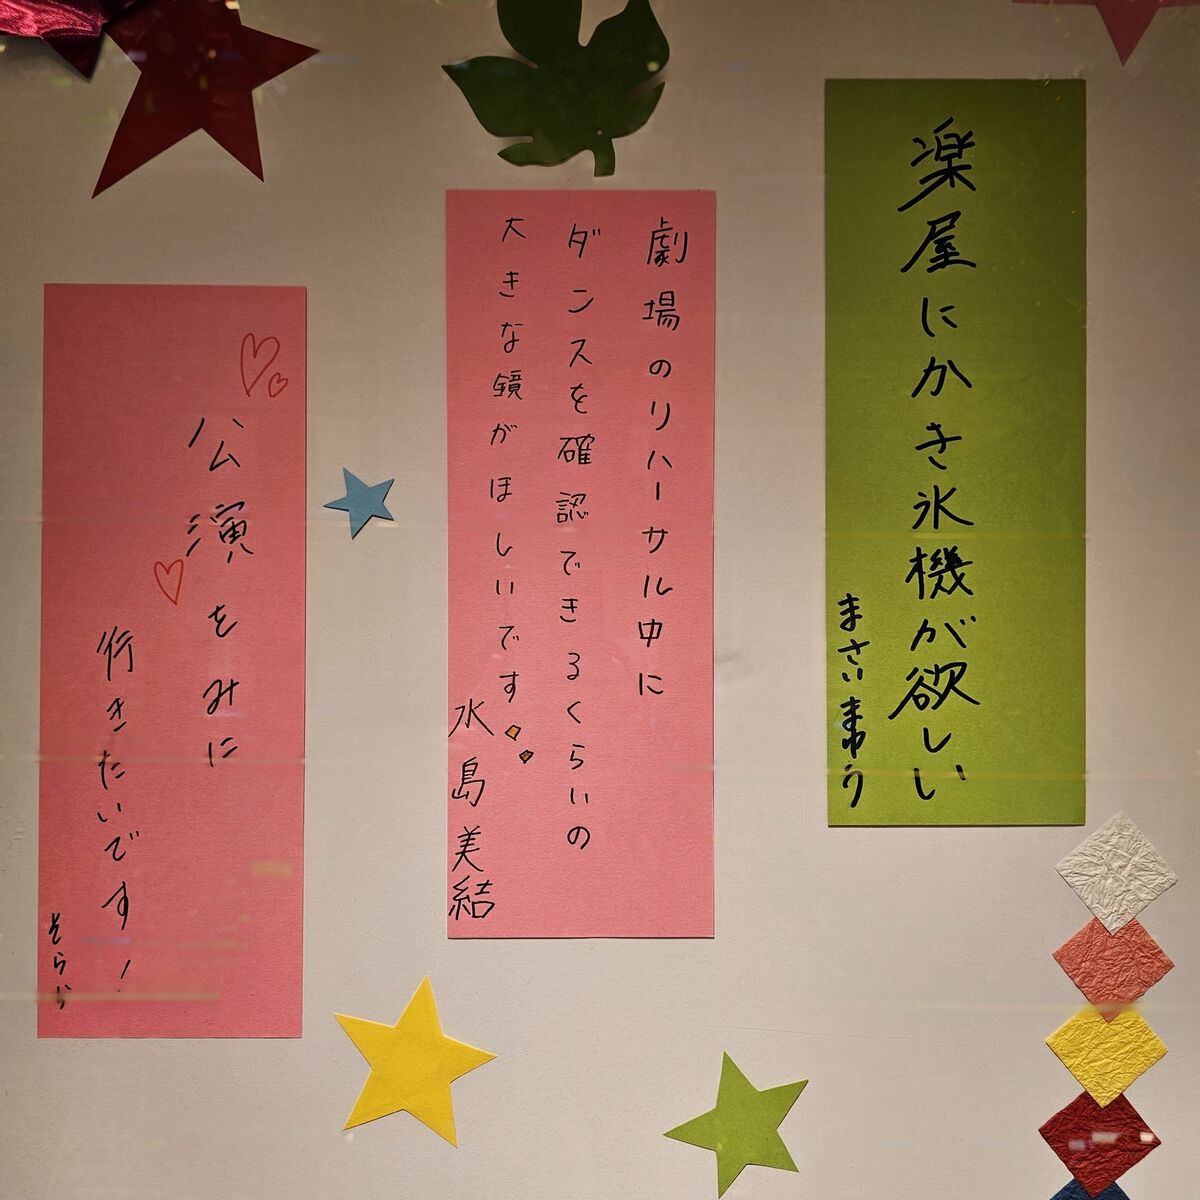 楽屋にかき氷機が欲しい
まさい まゆう
劇場のリハーサル中に
ダンスを確認できるくらいの
大きな鏡がほしいです
水島美結
公演をみに
行きたいです!
そらら